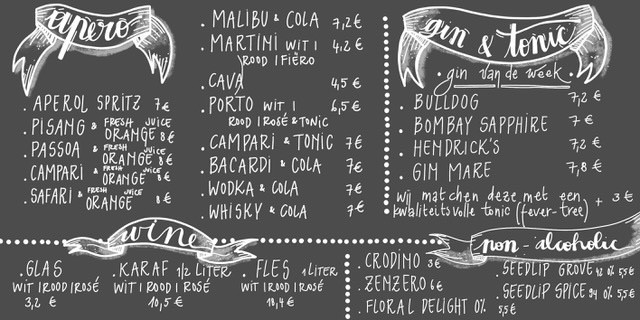 apero
. APEROL SPRITZ 7€
. PISANG & FRESH JUICE ORANGE 8€
. PASSOA & FRESH JUICE ORANGE 8€
. CAMPARI & FRESH JUICE ORANGE 8€
. SAFARI & FRESH JUICE ORANGE 8€
. MALIBU & COLA 7,2€
. MARTINI WIT | 4,2€
ROOD | FIËRO
. CAVA 4,5€
. PORTO WIT | 6,5€
ROOD | ROSÉ & TONIC
. CAMPARI & TONIC 7€
. BACARDI & COLA 7€
. WODKA & COLA 7€
. WHISKY & COLA 7€
gin & tonic
. gin van de week .
. BULLDOG 7,2€
. BOMBAY SAPPHIRE 7€
. HENDRICK'S 7,2€
. GIN MARE 7,8€
wij matchen deze met een + 3€
kwaliteitsvolle tonic (fever-tree)
wine
. GLAS
WIT | ROOD | ROSÉ
3,2 €
. KARAF 1/2 LITER
WIT | ROOD | ROSÉ
10,5 €
. FLES 1 LITER
WIT | ROOD | ROSÉ
18,4 €
non-alcoholic
. CRODINO 3€
. ZENZERO 6€
. FLORAL DELIGHT 0% 5,5€
. SEEDLIP GROVE 42 0% 5,5€
. SEEDLIP SPICE 94 0% 5,5€